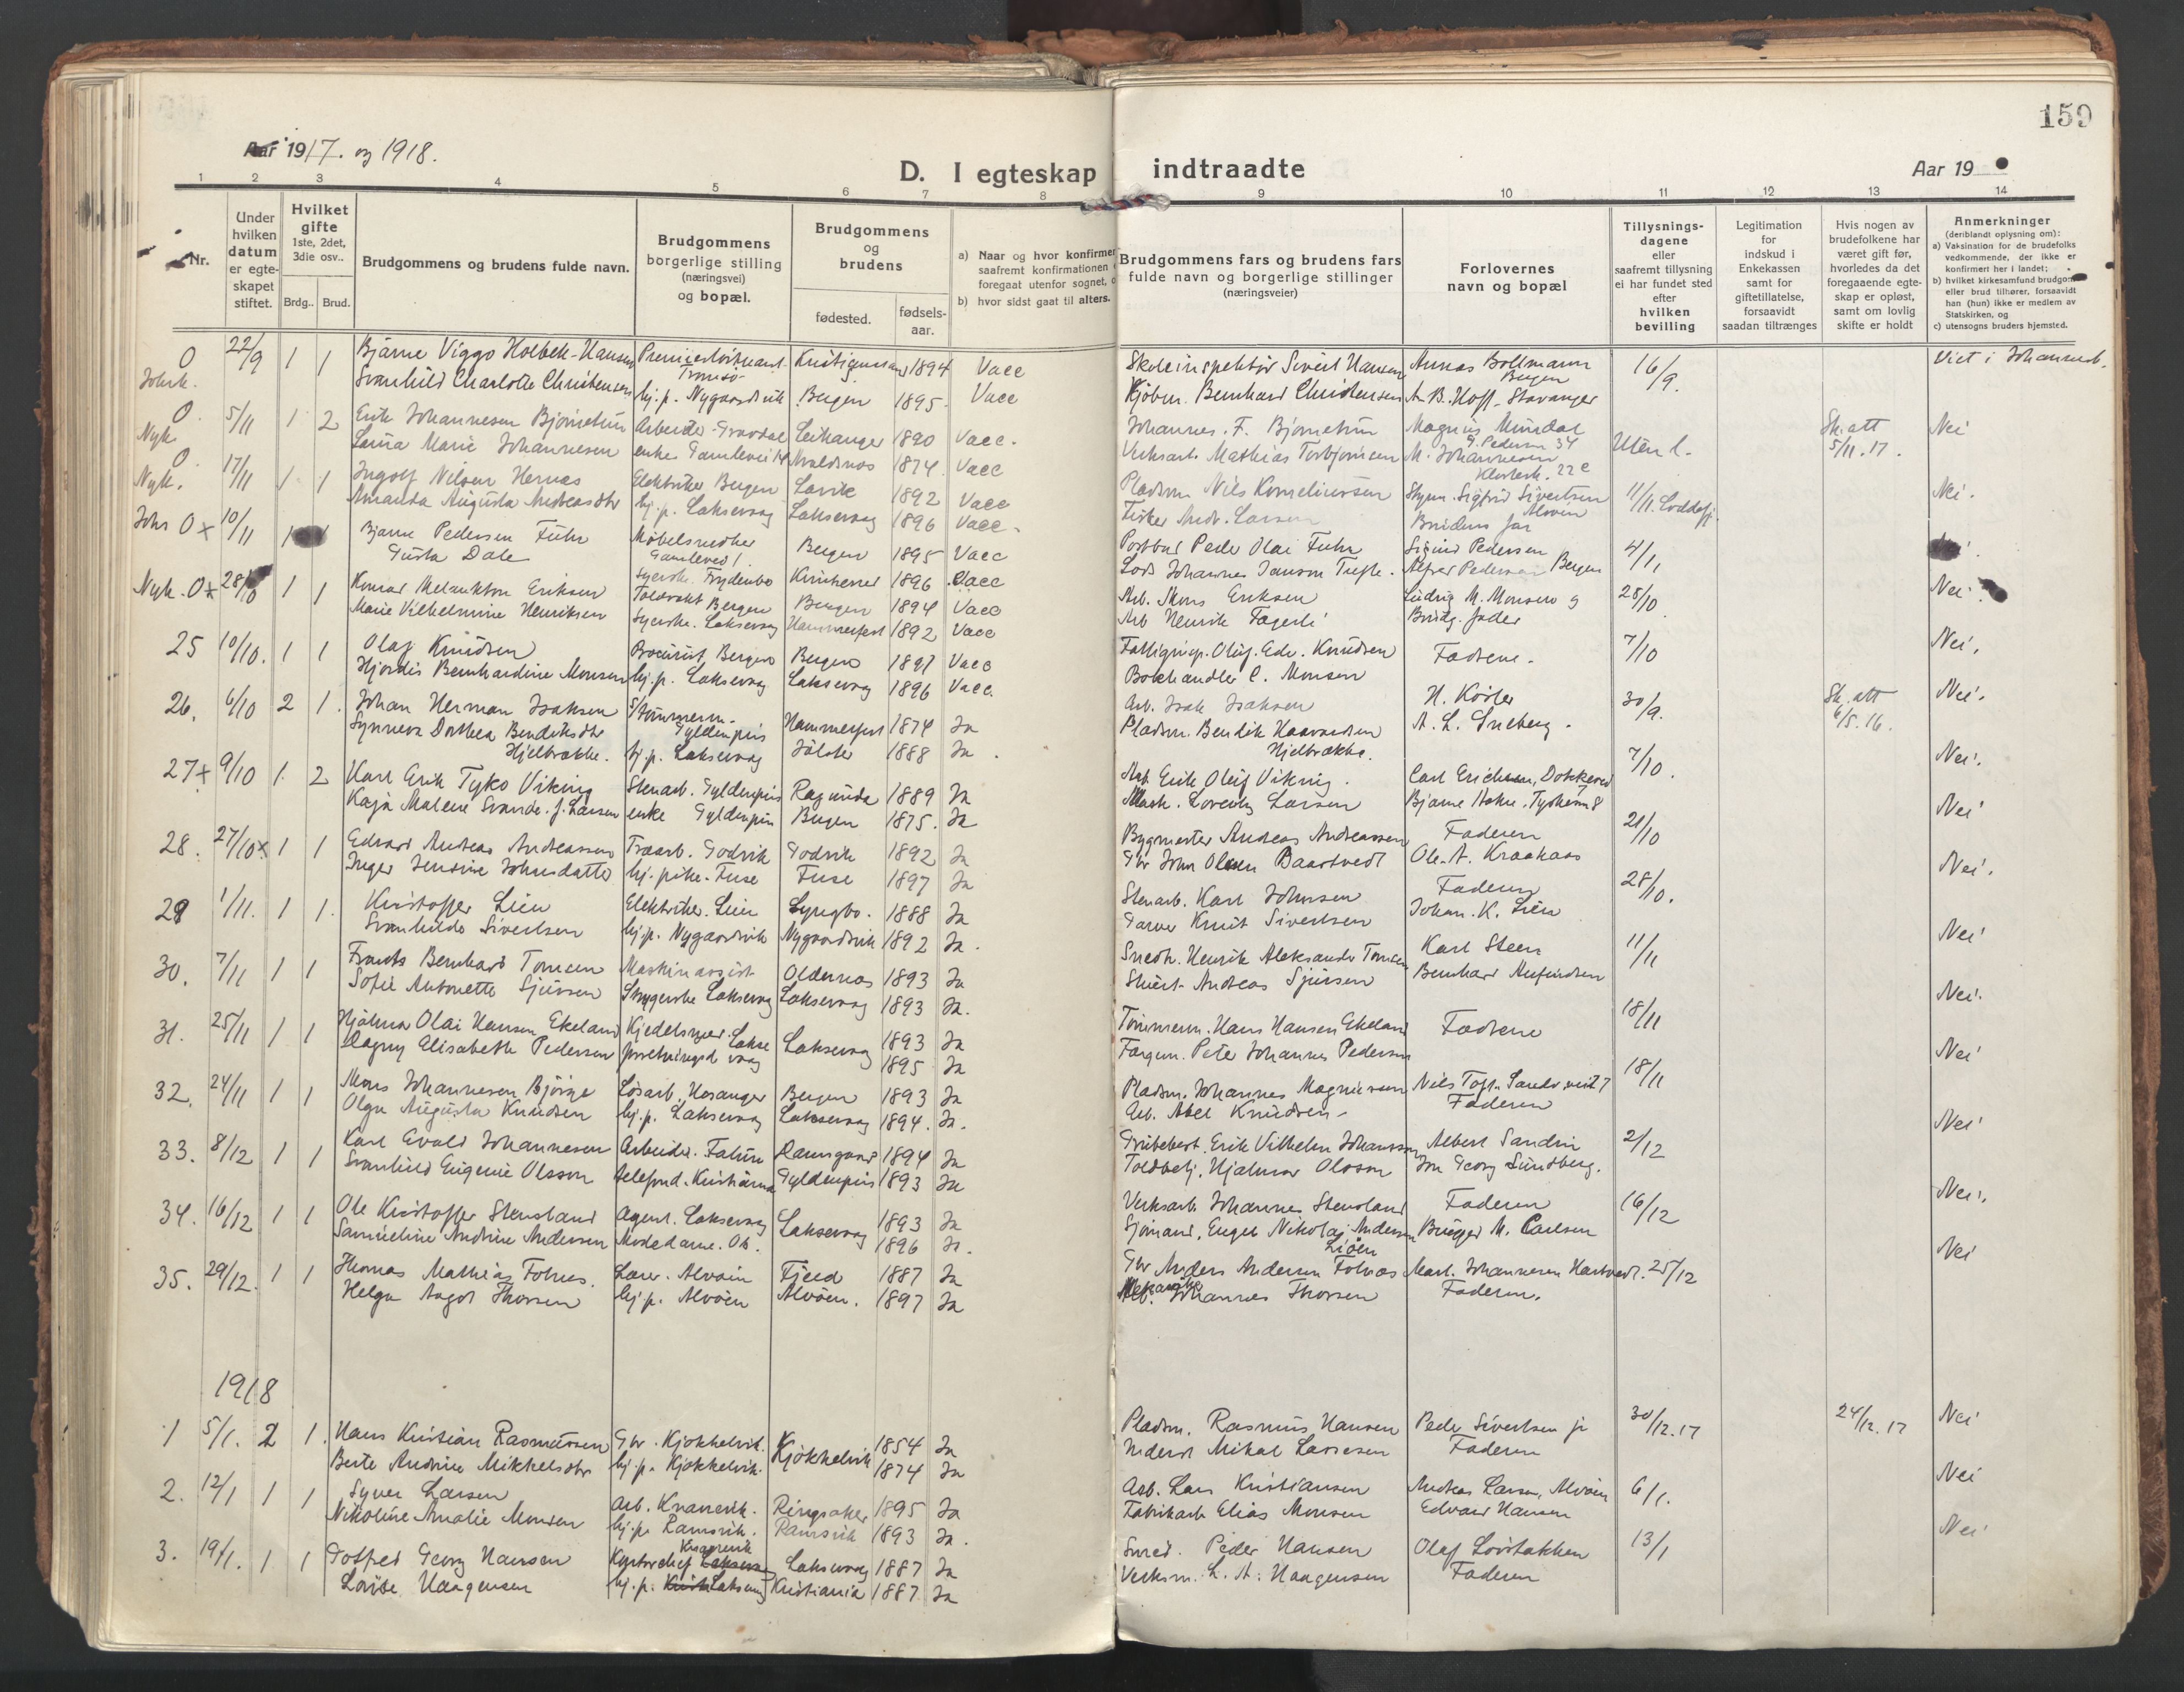 159
Aar 1917. og 1918.
D. I egteskap indtraadte
Aar 19
1 2 3 4 5 6 7 8 9 10 11 12 13 14
Nr.
Under hvilken datum er egteskapet stiftet.
Hvilket gifte 1ste, 2det, 3die osv..
Brdg.. Brud.
Brudgommens og brudens fulde navn.
Brudgommens borgerlige stilling (næringsvei) og bopæl.
Brudgommens og brudens
fødested. fødsels-aar.
a) Naar og hvor konfirmer
saafremt konfirmationen
foregaat utenfor sognet,
b) hvor sidst gaat til alters.
Brudgommens fars og brudens fars
fulde navn og borgerlige stillinger
(næringsveier)
Forlovernes
navn og bopæl
Tillysnings-
dagene
eller
saafremt tillysning
ei har fundet sted
efter
hvilken
bevilling
Legitimation
for
indskud i
Enkekassen
samt for
giftetillatelse,
forsaavidt
saadan tiltrænges
Hvis nogen av
brudefolkene har
været gift før,
hvorledes da det
foregaaende egte-
skap er opløst,
samt om lovlig
skifte er holdt
Anmerkninger
(deriblandt oplysning om):
a) Vaksination for de brudefolks
vedkommende, der ikke er
konfirmert her i landet;
b) hvilket kirkesamfund brudgom
eller brud tilhører, forsaavidt
han (hun) ikke er medlem av
Statskirken, og
c) utensogns bruders hjemsted.
0 22/9 1 1 Bjarne Viggo Holbek-Hansen Premierløitnant Tromsø Kristiansand 1894 Vacc Skoleinspektør Sivert Hansen Annas Bollmann Bergen 16/9. Viet i Johannesk.
Johk. Svanhild Charlotte Christensen hj.p. Nygaardsvik Bergen 1895. Vacc Kjøbm. Bernhard Christensen A. B. Hoff-Stavanger
0. 5/11 1 2 Erik Johannesen Bjørnetun Arbeider Gravdal Leikanger 1890 Vacc. Johannes. F. Bjørnetun Magnus Mundal Uten l. Sk. att 5/11.17. Nei
Nyk. Laura Marie Johannesen enke Gamlevei 14 1874. Vacc Verksarb. Mathias Torbjørnsen M. Johannesen
0. 17/11 1 1 Ingolf Nilsen Hernæs Elektriker Bergen Lavik 1892 Vacc Pladsm. Nils Korneliussen Sigfrid Sivertsen Alvøen 11/11. Nei.
Nyk. Amanda Augusta Andreasdtr hj.p. Laksevaag Laksevaag 1896 Vacc. Fisker Andr. Larsen Brudens far
Joh 0 x 10/11 1 Bjarne Pedersen Fuhr Møbelsnedker Gamlevei 1. Bergen 1895 Vacc Postbud Peder Olai Fuhr Sigurd Pedersen 4/11
Gusta Dale Syerske. Frydenbo Kinsherred 1896 Vacc Lods Johannes Janson Alfred Pedersen Bergen
Nyk. 0 x 28/10 1 1 Konrad Melankton Eriksen Toldvakt Bergen Bergen 1894 Vacc Arb. Mons Eriksen Ludvig M. Monsen og 28/10 Nei.
Marie Vilhelmine Henriksen Syerske. Laksevaag Hammerfest 1892 Vacc Arb Henrik Fagerli Brudg. fader
25 10/10. 1 1 Olaf Knudsen Bergen Bergen 1897 Vacc Oluf. Edv. Knudsen Fædrene. 7/10 Nei.
Hjørdis Bernhardine Monsen hj.p. Laksevaag Laksevaag 1896 Vacc. Bokhandler C. Monsen
26. 6/10 2 1. Johan Herman Isaksen Tømmerm. Gyldenpris Hammerfest 1874 Ja Arb. Isak Isaksen H. Korter 30/9. Sk. att 6/5.16. Nei.
Synneva Dorthea Bendiksdtr Hjelbrække. hj.p. Laksevaag Jølster 1888 Ja. Pladsm. Bendik Haavardsen Hjelbrække. A. L. Sneberg.
27 x 9/10 1. 2 Karl Erik Tyko Viking Stenarb. Gyldenpris Ragunda 1889 Ja Arb. Erik Olof Viking. Carl Erichsen, Dokkevei 7/10. Nei.
Kaja Malene Svande. f. Larsen enke Gyldenpris Bergen 1875. Ja Mask. Lorentz Larsen Bjarne
28. 27/10 x 1 1 Edvard Andreas Andreassen Traarb. Godvik Godvik 1892 Ja Bygmester Andreas Andreassen Faderen 21/10 Nei
Inger Jensine Johnsdatter hj. pike. Fuse Fuse 1897 Ja Gbr John Olsen Baastvedt Ole. A. Kraakaas
29 1/11. 1 1. Kristoffer Lien Elektriker. Lien Lyngbo. 1888 Ja Stenarb. Karl Johnsen Faderen 28/10. Nei.
Svanhilde Sivertsen hj.p. Nygaardsvik Nygaardsvik 1892 Ja. Garver Knut Sivertsen Johan. K. Lien
30. 7/11 1 1 Frants Bernhard Tomsen Maskinassist Oldernæs 1893 Ja Snedk. Henrik Aleksander Tomsen Karl Steen 11/11 Nei
Sofie Antonette Sjursen Strygerske Laksevaag Laksevaag 1893 Ja. Andreas Sjursen Bernhard Anfindsen
31. 25/11 1 1 Hjalmar Olai Hansen Ekeland Kjedelsmed. Lakse Laksevaag 1893 Ja Tømmerm. Hans Hansen Ekeland Fædrene 18/11 Nei.
Dagny Elisabeth Pedersen vaag 1895 Ja Peter Johannes Pedersen
32. 24/11 1 1 Mons Johannesen Bjørge Løsarb. Hosanger Bergen 1893 Ja Pladsm. Johannes Magnussen Nils 18/11 Nei
Olga Augusta Knudsen hj.p. Laksevaag Laksevaag 1894. Ja. Arb. Abel Knudsen - Faderen
33. 8/12 1 1 Karl Evald Johannesen Arbeider. Falun Damsgaard 1894 Ja Erik Vilhelm Johansson Albert Sandin 2/12 Nei
Svanhild Eugenie Olsson telefond. Kristiania Gyldenpris 1893 Ja Toldbetj. Hjalmar Olsson Jon Georg Sundberg.
34. 16/12 1 1 Ole Kristoffer Stensland Agent. Laksevaag Laksevaag 1893 Ja Verksarb. Johannes Stensland Faderen 16/12 Nei.
Samueline Andrine Andersen Modedame. Ok. 1896 Ja. Sjømand, Engel Nikolaj Andersen Brygger M. Carlsen
35. 29/12. 1 1 Thomas Mathias Folnes. Alvøen Fjeld 1887 Ja Gbr Anders Andersen Folnæs Mart. Johannesen Hartvedt. 25/12 Nei
Helga Aagot Thorsen hj.p. Alvøen Alvøen. 1897 Ja Johannes Thorsen Faderen.
1918
1 5/1. 2 1. Hans Kristian Rasmussen Gbr. Kjøkkelvik. Kjøkkelvik 1854 Ja Pladsm. Rasmus Hansen Peder Sivertsen jr 30/12.17 24/12.17 Nei
Berte Andrine Mikkelsdtr hj.p. Kjøkkelvik. 1874 Ja Mikal Lassesen Faderen
2. 12/1 1 1 Syver Larsen Arb. Knarrevik. Ringsaker 1895 Ja Arb. Lars Kristiansen Andreas Larsen, Alvøen 6/1. Nei
Nikoline Amalie Monsen hj.p. Ramsvik. Ramsvik 1893 Ja. Fabrikarb Elias Monsen Edvard Hansen
3. 19/1. 1 1 Gotfred Georg Hansen Kontorchef Knarrevik Laksevaag 1887 Ja Smed. Peder Hansen Olaf Løvstakken 13/1 Nei
Lovise Haagensen hj.p. Laksevaag Kristiania 1887. Ja Verksm. L. A. Haagensen Faderen